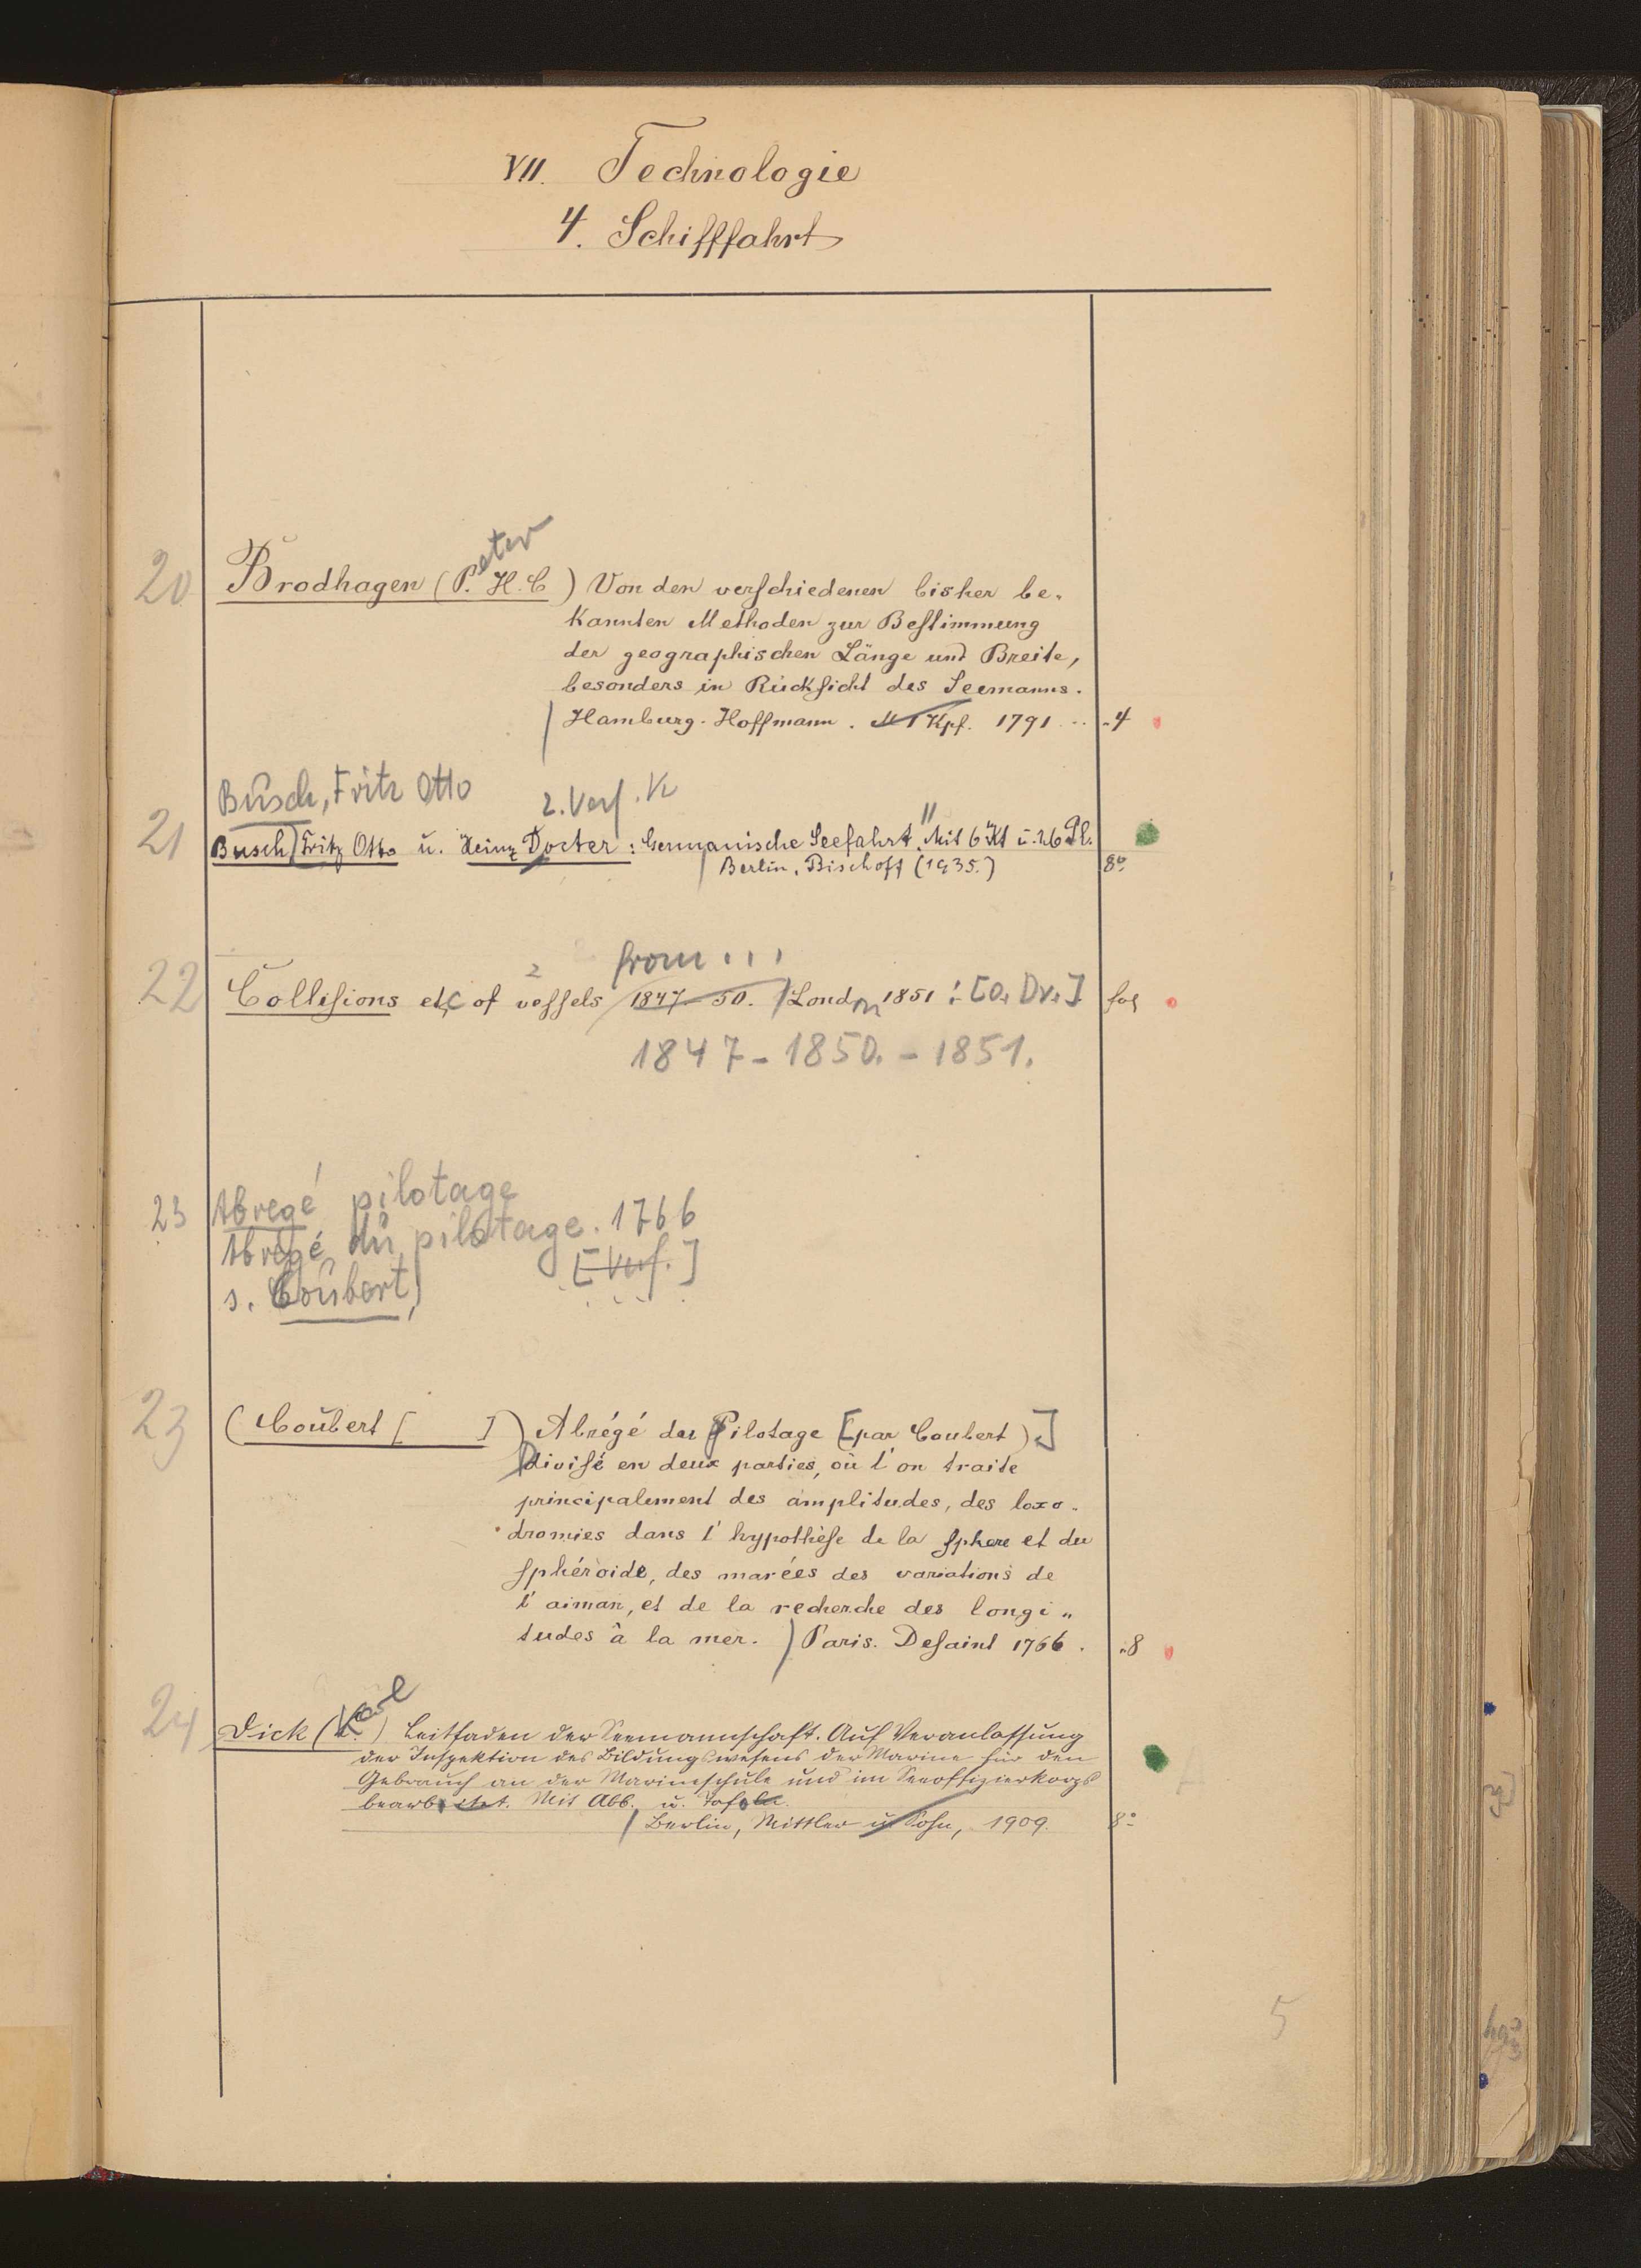 VII. Technologie
4. Schifffahrt
Peter
20 Brodhagen (P. H. C) Von den verschiedenen bisher be-
kannten Methoden zur Bestimmung
der geographischen Länge und Breite,
besonders in Rücksicht des Seemanns.
Hamburg. Hoffmann. M 1 Kpf. 1791 .. 4
Busch, Fritz Otto 2. Verf. K
21 Busch, Fritz Otto u. Heinz Docter: Germanische Seefahrt. Mit 6 Kt u. 26 Pl.
Berlin, Bischoff (1935.) 8°
from ...
22 Collisions etc of vessels 1847-50. London 1851 : [O. Dr.] fol
1847-1850.-1851.
23 Abregé pilotage
Abrégé du pilotage. 1766
s. Coubert, [Verf.]
23 (Coubert [ ]) Abrégé du Pilotage [par Coubert).]
Divisé en deux parties, où l'on traite
principalement des amplitudes, des loxo-
dromies dans l'hypothèse de la sphere et du
sphéroide, des marées des variations de
l'aiman, et de la recherche des longi„
tudes à la mer. Paris. Desaint 1766. 8
Karl
24 Dick (K.) Leitfaden der Seemannschaft. Auf Veranlassung
der Inspektion des Bildungswesens der Marine für den
Gebrauch an der Marineschule und im Seeoffizierkorps
bearbeitet. Mit Abb. u. Tafeln.
Berlin, Mittler u. Sohn, 1909. 8°
5